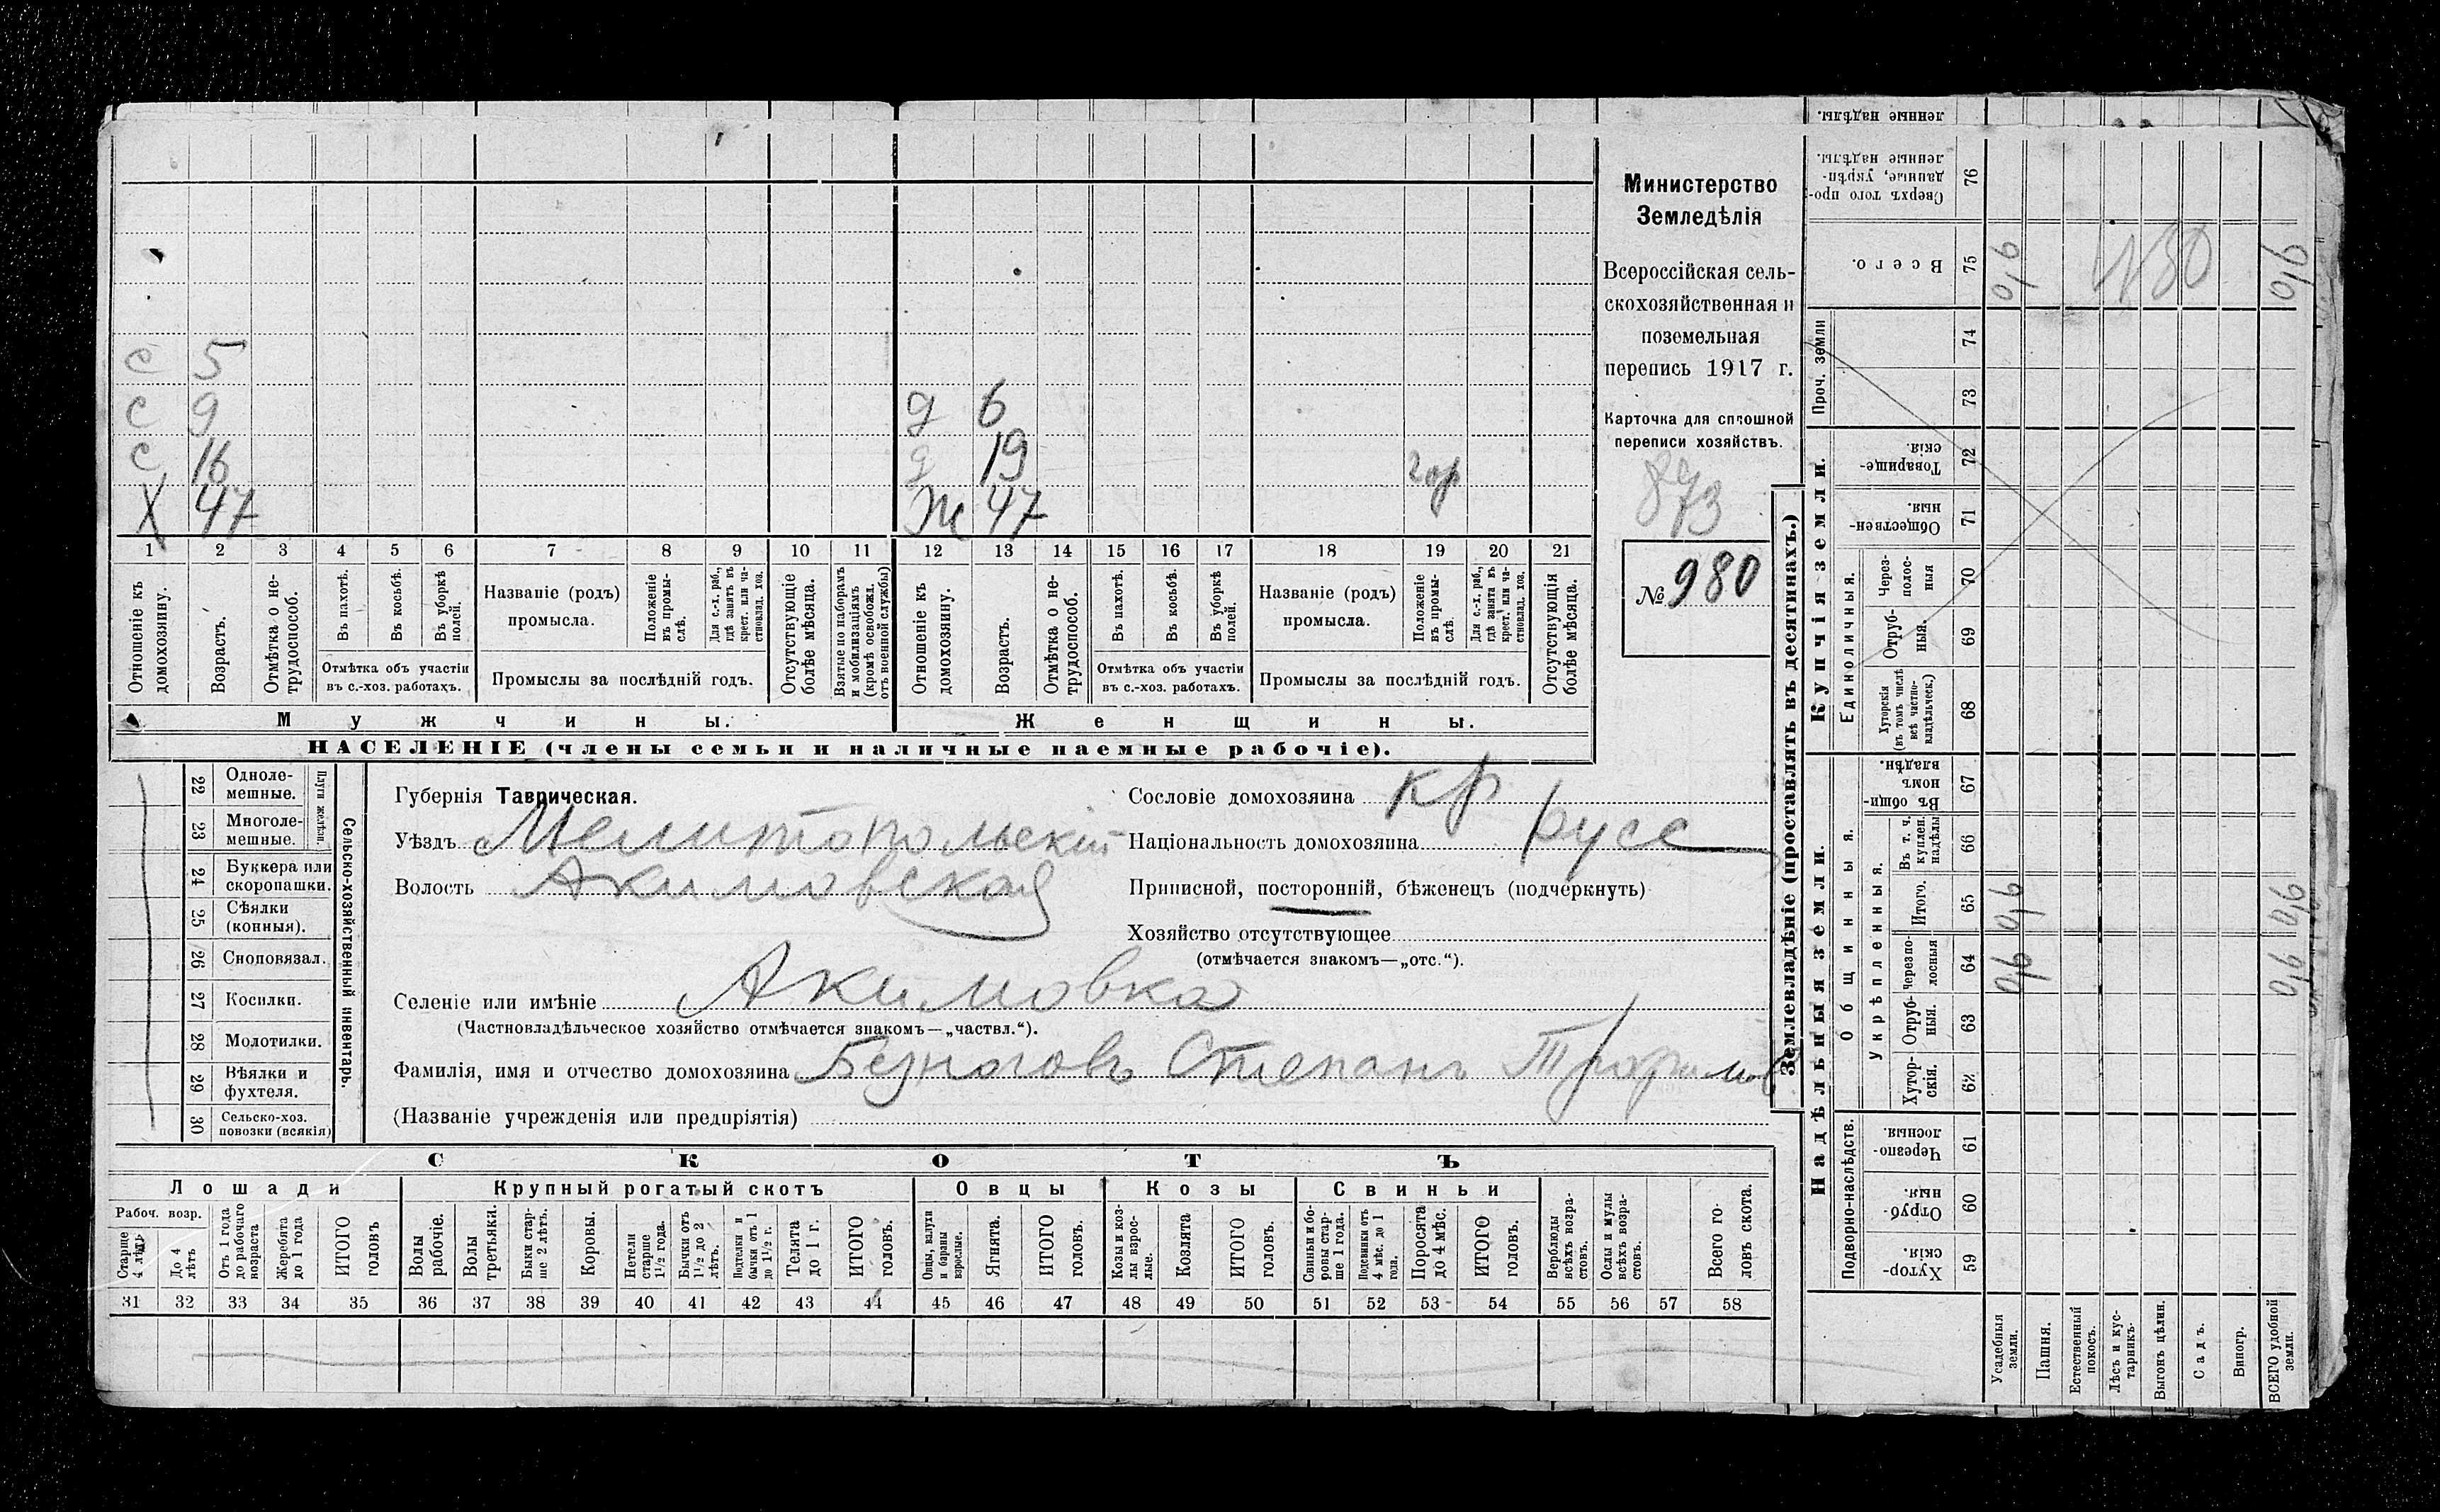 с 5
с 9
д 6
с 16
д 19
гор
Х 47
Ж 47
1 2 3 4 5 6 7 8 9 10 11 12 13 14 15 16 17 18 19 20 21
Отношеніе къ домохозяину.
Возрастъ.
Отмѣтка о не-
трудоспособ.
Въ пахотѣ.
Въ косьбѣ.
Въ уборкѣ полей.
Отмѣтка объ участіи
въ с.-хоз. работахъ.
Названіе (родъ)
промысла.
Положеніе въ промы-
слѣ.
Для с.-х. раб., гдѣ занятъ въ крест. или ча-
стновлад. хоз.
Промыслы за послѣдній годъ.
Отсутствующіе болѣе мѣсяца.
Взятые по наборамъ и мобилизаціямъ (кромѣ освобожд. отъ военной службы)
Отношеніе къ домохозяину.
Возрастъ.
Отмѣтка о не-
трудоспособ.
Въ пахотѣ.
Въ косьбѣ.
Въ уборкѣ полей.
Отмѣтка объ участіи
въ с.-хоз. работахъ.
Названіе (родъ)
промысла.
Положеніе въ промы-
слѣ.
Для с.-х. раб., гдѣ занята въ крест. или ча-
стновлад. хоз.
Промыслы за послѣдній годъ.
Отсутствующія болѣе мѣсяца.
Мужчины.
Женщины.
НАСЕЛЕНІЕ (члены семьи и наличные наемные рабочіе).
Министерство
Земледѣлія
Всероссійская сель-
скохозяйственная и
поземельная
перепись 1917 г.
Карточка для сплошной
переписи хозяйствъ.
№ 980
Сельско-хозяйственный инвентарь.
Плуги желѣзн.
22 Одноле-
мешные.
23 Многоле-
мешные.
24 Буккера или
скоропашки.
25 Сѣялки
(конныя).
26 Сноповязал.
27 Косилки.
28 Молотилки.
29 Вѣялки и
фухтеля.
30 Сельско-хоз.
повозки (всякія)
Губернія Таврическая.
Уѣздъ Мелитопольскій
Волость Акимовская
Селеніе или имѣніе Акимовка
(Частновладѣльческое хозяйство отмѣчается знакомъ—„частвл.“).
Фамилія, имя и отчество домохозяина Безноговъ Степанъ Трофимов
(Названіе учрежденія или предпріятія)
Сословіе домохозяина кр
Національность домохозяина русс
Приписной, посторонній, бѣженецъ (подчеркнуть)
Хозяйство отсутствующее
(отмѣчается знакомъ—„отс.“).
СКОТЪ
Лошади
Крупный рогатый скотъ
Овцы
Козы
Свиньи
Рабоч. возр.
Старше 4 лѣтъ
До 4 лѣтъ
Отъ 1 года до рабочаго возраста
Жеребята до 1 года
ИТОГО головъ
Волы рабочіе.
Волы третьяки.
Быки стар-
ше 2 лѣтъ.
Коровы.
Нетели старше 1½ года.
Бычки отъ 1½ до 2 лѣтъ.
Подтелки и бычки отъ 1 до 1½ г.
Телята до 1 г.
ИТОГО головъ.
Овцы, валухи и бараны взрослые.
Ягнята.
ИТОГО головъ.
Козы и коз-
лы взрос-
лые.
Козлята
ИТОГО головъ.
Свиньи и бо-
ровы стар-
ше 1 года.
Подсвинки отъ 4 мѣс. до 1 года.
Поросята до 4 мѣс.
ИТОГО головъ.
Верблюды всѣхъ возра-
стовъ.
Ослы и мулы всѣхъ возра-
стовъ.
Всего го-
ловъ скота.
31 32 33 34 35 36 37 38 39 40 41 42 43 44 45 46 47 48 49 50 51 52 53 54 55 56 57 58
Землевладѣніе (проставлять въ десятинахъ.)
Надѣльныя земли.
Купчія земли.
Проч. земли
Подворно-наслѣдств.
Общинныя.
Укрѣпленныя.
Единоличныя.
ленные надѣлы.
Сверхъ того про-
данные, укрѣп-
ленные надѣлы.
76
Всего.
75
74
73
Товарище-
скія.
72
Обществен-
ныя.
71
Через-
полос-
ныя
70
Отруб-
ныя.
69
Хуторскія (въ томъ числѣ всѣ частно-
владѣльческ.)
68
Въ общи-
номъ владѣн.
67
Въ т. ч. куплен. надѣлы
66
Итого.
65
черезпо-
лосныя
64
Отруб-
ныя.
63
Хутор-
скія.
62
Черезпо-
лосныя.
61
Отруб-
ныя.
60
Хутор-
скія.
59
Усадебныя земли.
Пашня.
Естественный покосъ.
Лѣсъ и кус-
тарникъ.
Выгонъ цѣлин.
Садъ.
Виногр.
ВСЕГО удобной земли.